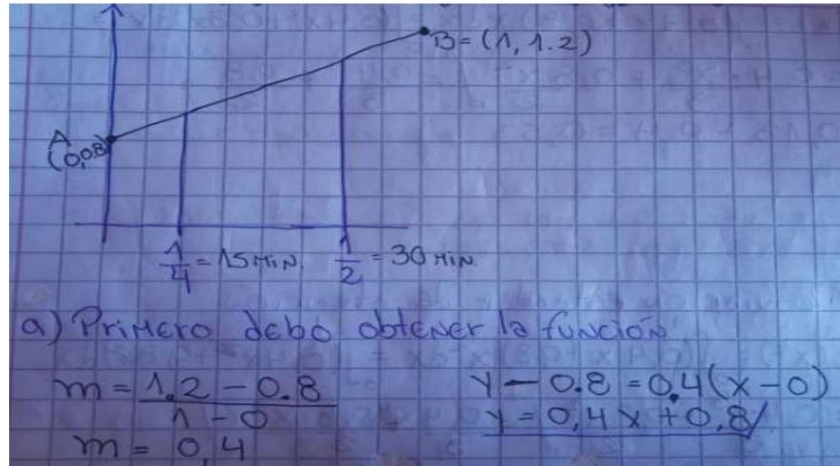 B = (1, 1.2)
A
(0,0.8)
1/4 = 15 MIN. 1/2 = 30 MIN
a) Primero debo obtener la función
m = 1.2 - 0.8 / 1 - 0
y - 0.8 = 0.4(x - 0)
m = 0,4
y = 0,4x + 0,8